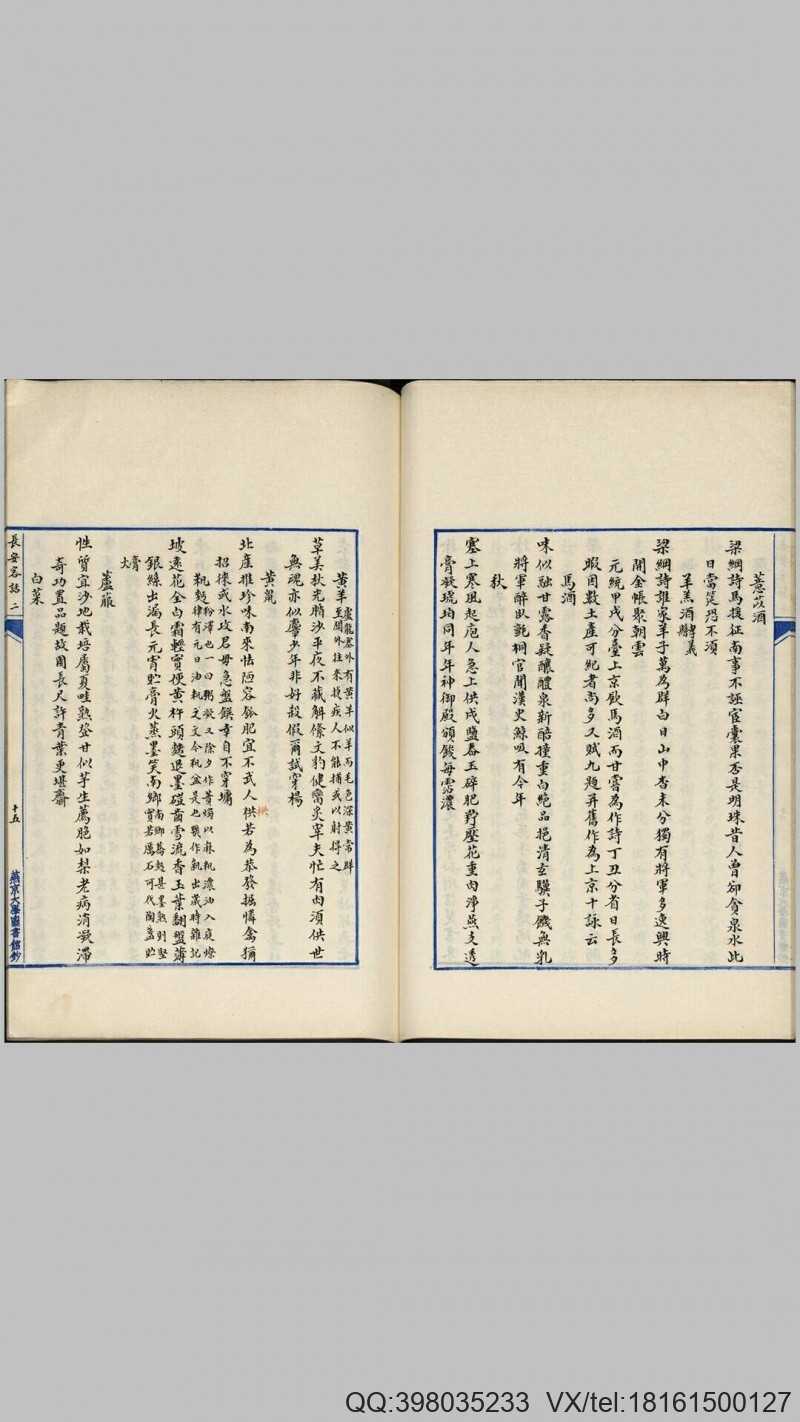 薏苡酒
梁綱詩馬援征南事不誣宦囊果否是明珠昔人曾卻貪泉水此
日當筵恐不須
羊羔酒
梁綱詩誰家羊子萬為群白日山中杳未分獨有將軍多逸興時
開金帳聚朝雲
元統甲戌分臺上京飲馬酒而甘嘗為作詩丁丑分省日長多
暇因數土產可紀者尚多又賦九題并舊作為上京十詠云
馬酒
味似融甘露香疑釀醴泉新醅撞重白絕品挹清玄驥子饑無乳
將軍醉臥氈桐官聞漢史鯨吸有今年
秋
塞上寒風起庖人急上供戍鹽舂玉碎肥羜壓花重肉淨燕支透
膏凝琥珀同年年神御殿頒餕每霑濃
黃羊
盧龍塞外有黃羊似羊而毛色深黃常群
至關外往來捷疾人不能捕或以射得之
草美秋先腯沙平夜不藏解絛文豹健臠炙宰夫忙有肉須供世
無魂亦似麞少年非好殺假爾試穿楊
黃鼠
北產推珍味南來怯陋容瓠肥宜不武人供若為恭發掘憐禽獮
供
招徠或水攻君毋急盤饌幸自不穿墉
坡遠花全白霜輕實便黃杵頭麩退墨磑齒雪流香玉葉翻盤薄
銀絲出漏長元宵貯膏火蒸墨笑南鄉
蘆菔
性質宜沙地栽培屬夏畦熟登甘似芋生薦脆如梨老病消凝滯
奇功置品題故園長尺許青葉更堪齏
白菜
長安客話 二
十五
燕京大學圖書館鈔
QQ:398035233 VX/tel:18161500127